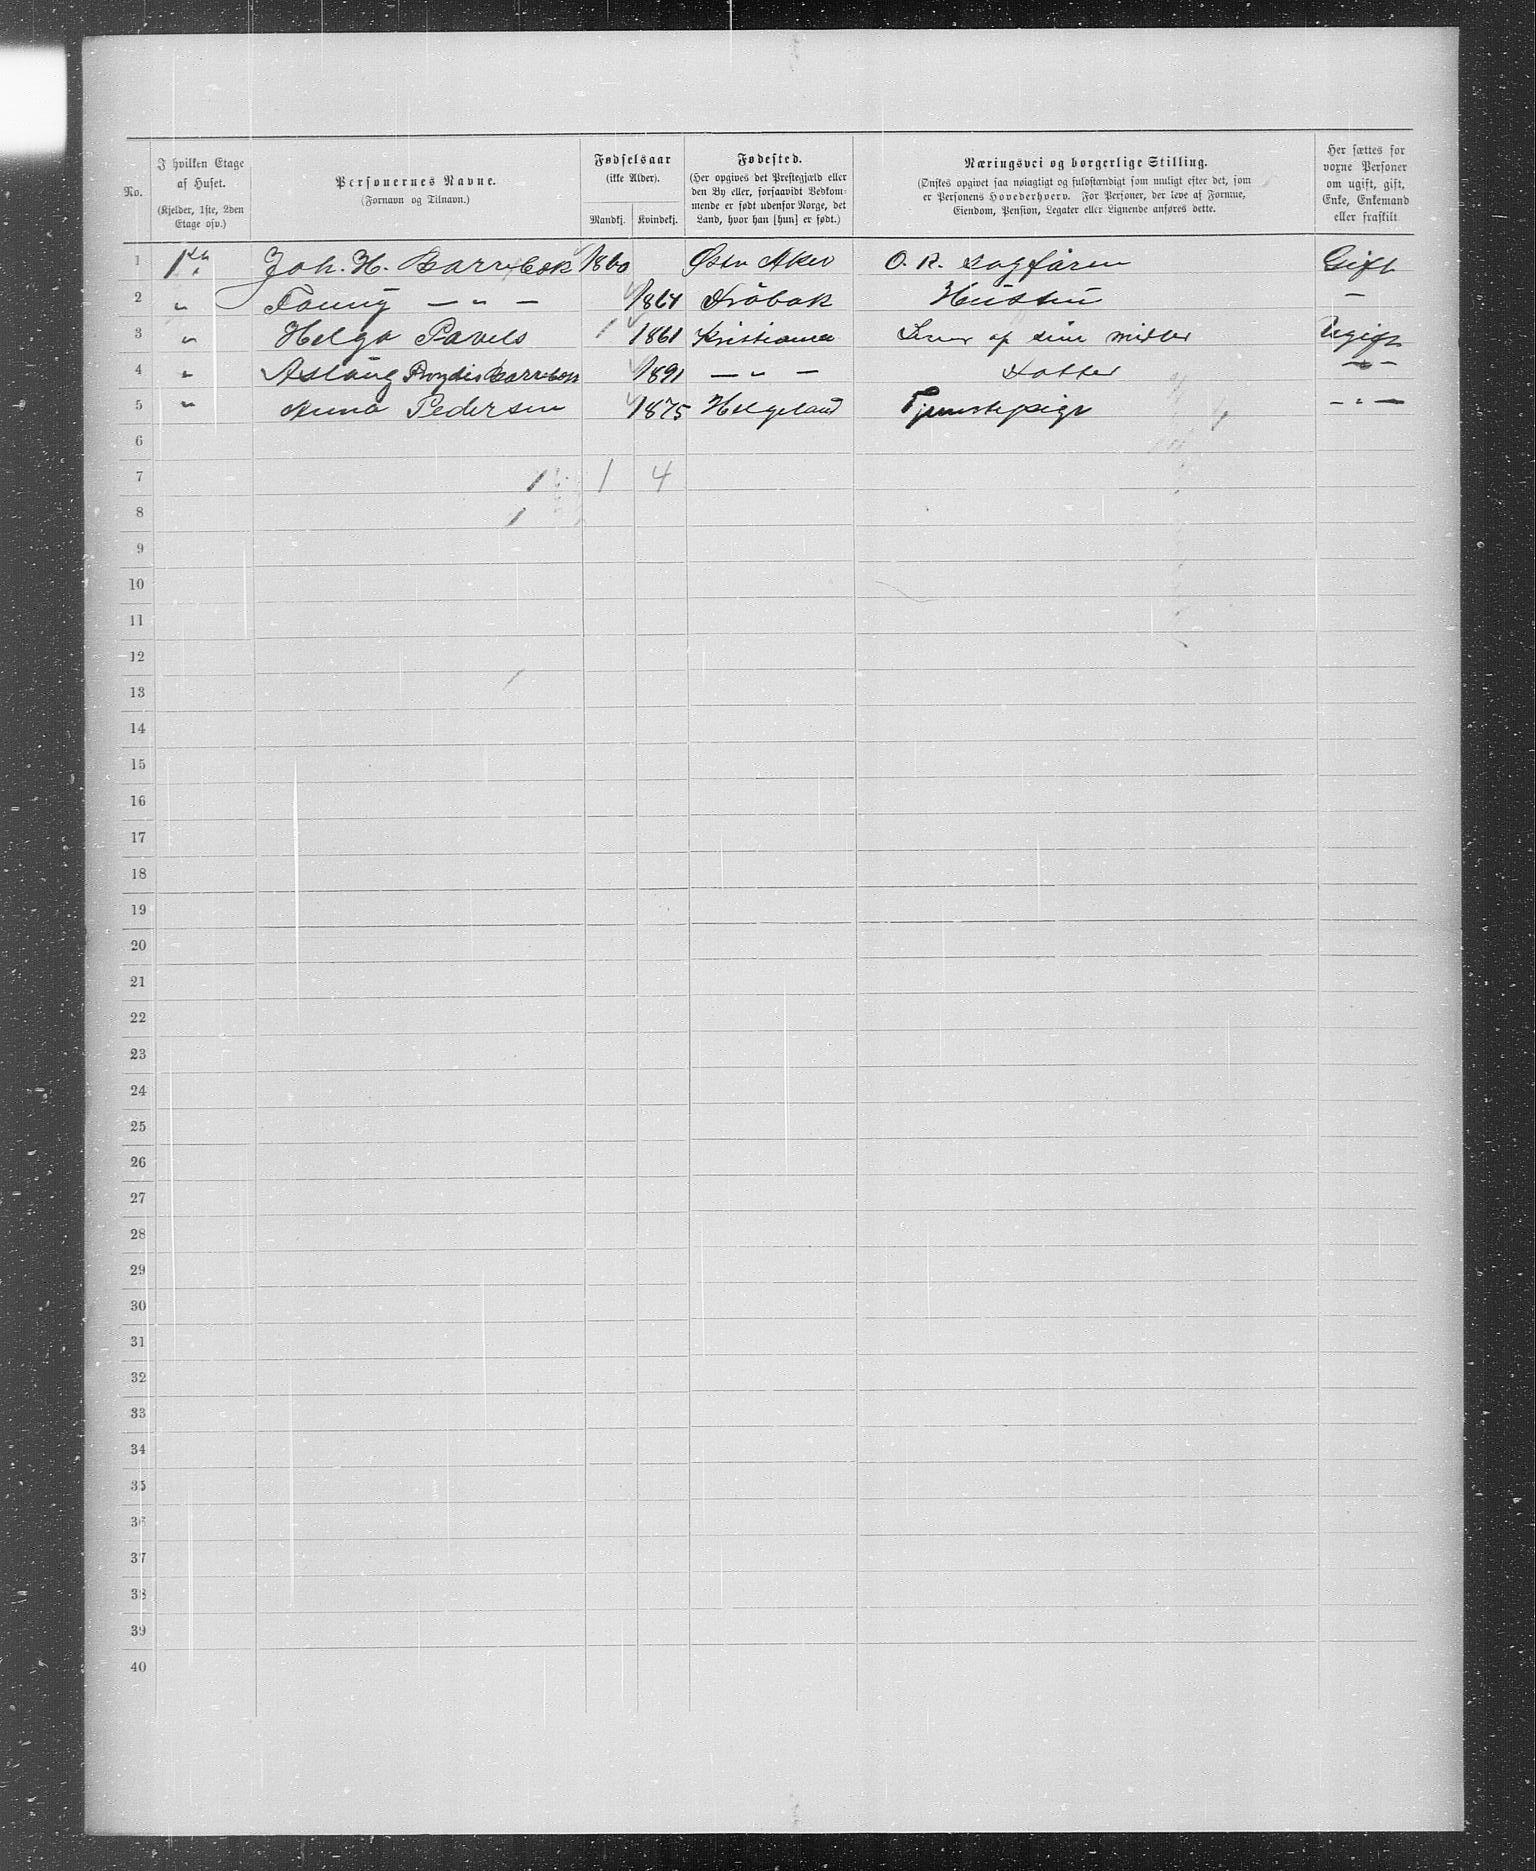 No.
I hvilken Etage
af Huset.
(Kjelder, 1ste, 2den
Etage osv.)
Personernes Navne.
(Fornavn og Tilnavn.)
Fødselsaar
(ikke Alder).
Mandkj. Kvindekj.
Fødested.
(Her opgives det Prestegjæld eller
den By eller, forsaavidt Vedkom-
mende er født udenfor Norge, det
Land, hvor han [hun] er født.)
Næringsvei og borgerlige Stilling.
(Ønskes opgivet saa nøiagtigt og fuldstændigt som muligt efter det, som
er Personens Hovederhverv. For Personer, der leve af Formue,
Eiendom, Pension, Legater eller Lignende anføres dette.
Her sættes for
voxne Personer
om ugift, gift,
Enke, Enkemand
eller fraskilt
1 Joh. H. 1860 Østr Aker O. R. sagfører Gift
2 " Fanny — " — 1864 Drøbak Hustru —
3 " Helga Pavels 1 1861 Kristiania Lever af sine midler Ugift
4 " Aslaug 1891 — " — Datter — " —
5 " Anna Pedersen 1875 Helgeland Tjenestepige — " —
6
7 1 1 4
8 1
9
10
11
12
13
14
15
16
17
18
19
20
21
22
23
24
25
26
27
28
29
30
31
32
33
34
35
36
37
38
39
40